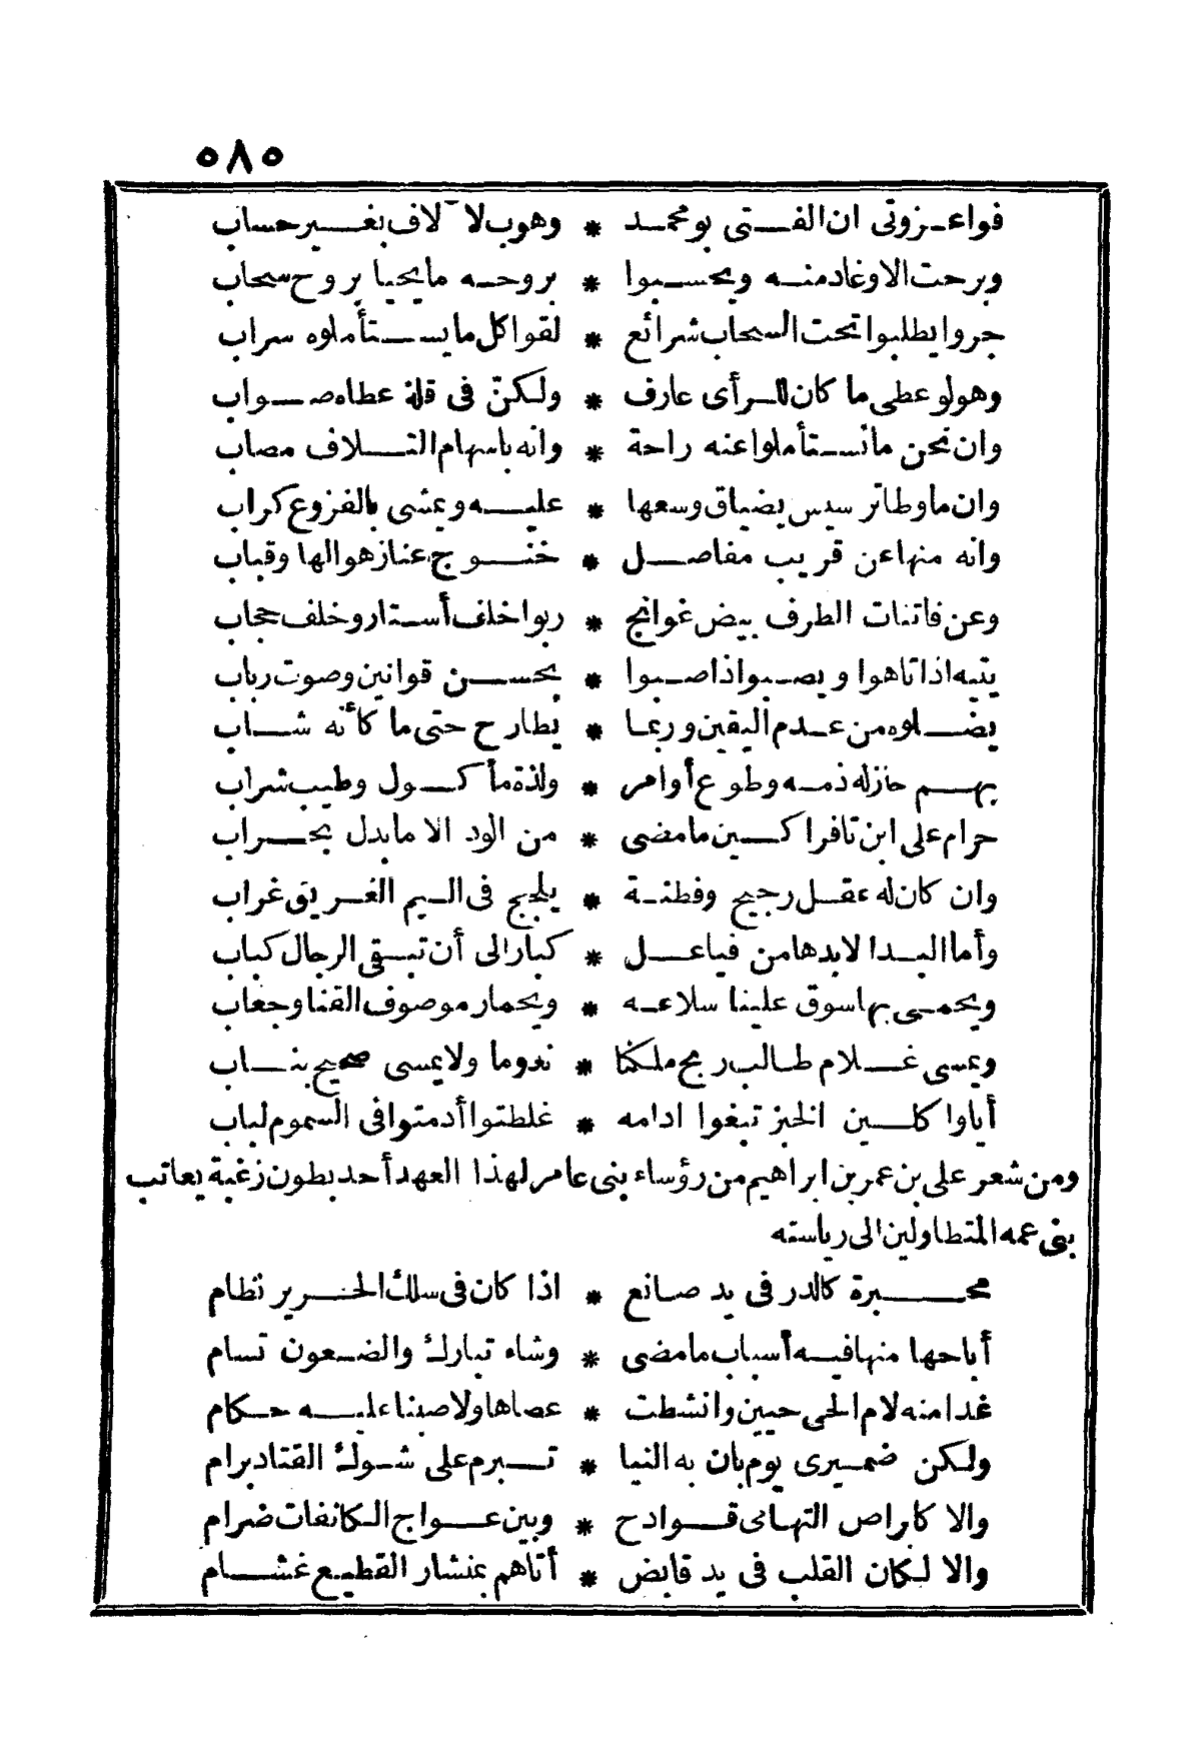 ٥٨٥
فواعزوتى ان الفتى بو محمد * وهوب لا ٓلاف بغير حساب
وبرحت الاوغاد منه ويحسبوا * بروحه ما يحيا بروح سحاب
جروا يطلبوا تحت السحاب شرائع * لقوا كل ما يستأملوه سراب
وهو لو عطى ما كان للرأى عارف * ولكنّ فى قلة عطاه صواب
وان نحن ما نستأملوا عنه راحة * وانه باسهام التلاف مصاب
وان ما وطا ترسيس يضياق وسعها * عليه ويمشى بالفزوع كراب
وانه منها عن قريب مفاصل * خنوج عناز هوالها وقباب
وعن فاتنات الطرف بيض غوانج * ربوا خلف أستار وخلف حجاب
يتيه اذا تاهوا ويصبوا ذا صبوا * بحسن قوانين وصوت رباب
يضلوه من عدم اليقين وربما * يطارح حتى ما كأنه شاب
بهم حازله ذمه وطوع أوامر * ولذة مأكول وطيب شراب
حرام على ابن تافراكين ما مضى * من الود الا ما بدل بحراب
وان كان له عقل رجيح وفطنة * يلجج فى اليم الغريق غراب
وأما البدا لا بدها من فياعل * كبار الى أن تبقى الرجال كباب
ويحمى بها سوق علينا سلاعه * ويحمار موصوف القنا وجعاب
ويمسى غلام طالب ربح ملكنا * ندوما ولا يمسى صحيح بناب
أياوا كلين الخبز تبغوا ادامه * غلطتوا أدمتوا فى السموم لباب
ومن شعر على بن عمر بن ابراهيم من رؤساء بنى عامر لهذا العهد أحد بطون زغبة يعاتب
بنى عمه المتطاولين الى رياسته
محبرة كالدر فى يد صانع * اذا كان فى سلك الحرير نظام
أباحها منها فيه أسباب ما مضى * وشاء تبارك والضعون تسام
غدا منه لام الحى حيين وانشطت * عصاها ولا صبنا عليه حكام
ولكن ضميرى يوم بان به النيا * تبرم على شوك القتاد برام
والا كابراص التهامى قوادح * وبين عواج الكانفات ضرام
والا لكان القلب فى يد قابض * أتاهم بمنشار القطيع غشام